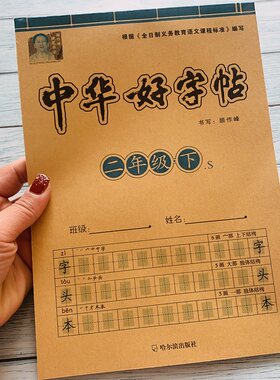 根据《全日制义务教育语文课程标准》编写
中华好字帖
书写：顾作峰
二年级·下.S
班级： 姓名：
zì
字 6画 宀部 上下结构
tóu
头 5画 大部 独体结构
běn
本 5画 一部 独体结构
哈尔滨出版社